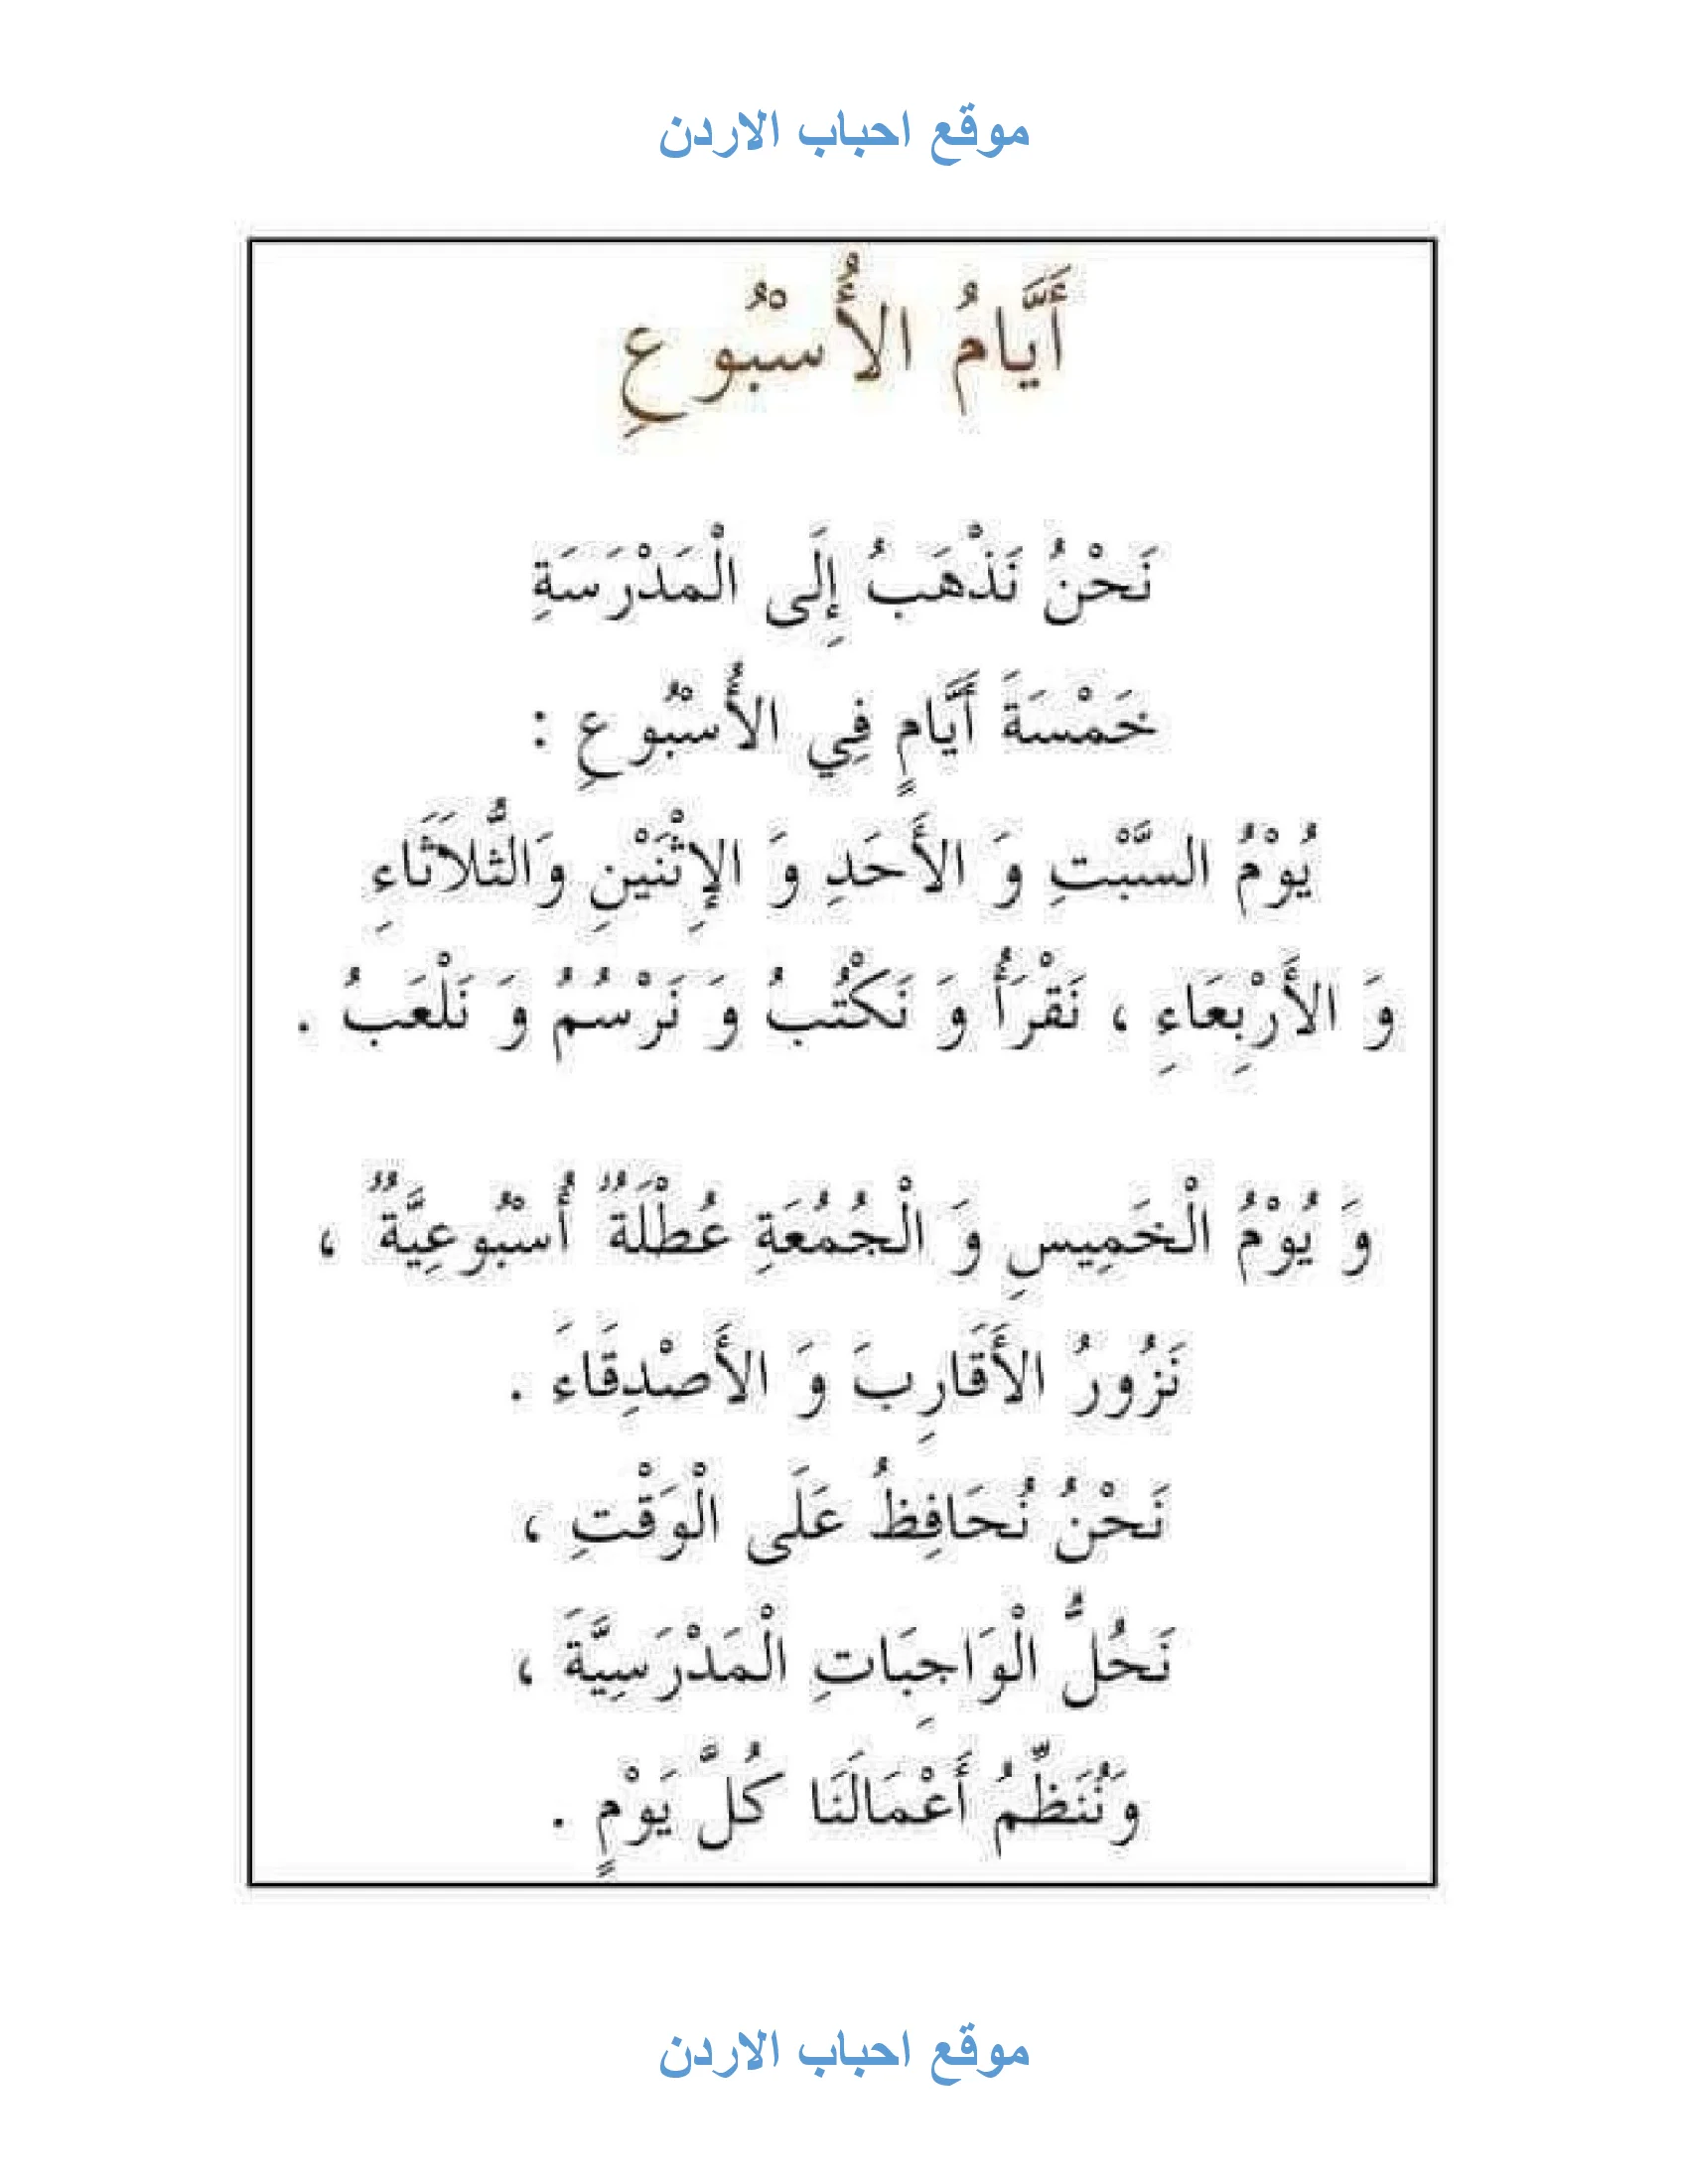 موقع احباب الاردن
أَيَّامُ الأُسْبُوعِ
نَحْنُ نَذْهَبُ إِلَى الْمَدْرَسَةِ
خَمْسَةَ أَيَّامٍ فِي الأُسْبُوعِ :
يُوْمُ السَّبْتِ وَ الأَحَدِ وَ الإِثْنَيْنِ وَالثُّلاَثَاءِ
وَ الأَرْبِعَاءِ ، نَقْرَأُ وَ نَكْتُبُ وَ نَرْسُمُ وَ نَلْعَبُ .
وَ يُوْمُ الْخَمِيسِ وَ الْجُمُعَةِ عُطْلَةٌ أُسْبُوعِيَّةٌ ،
نَزُورُ الأَقَارِبَ وَ الأَصْدِقَاءَ .
نَحْنُ نُحَافِظُ عَلَى الْوَقْتِ ،
نَحُلُّ الْوَاجِبَاتِ الْمَدْرَسِيَّةَ ،
وَنُنَظِّمُ أَعْمَالَنَا كُلَّ يَوْمٍ .
موقع احباب الاردن